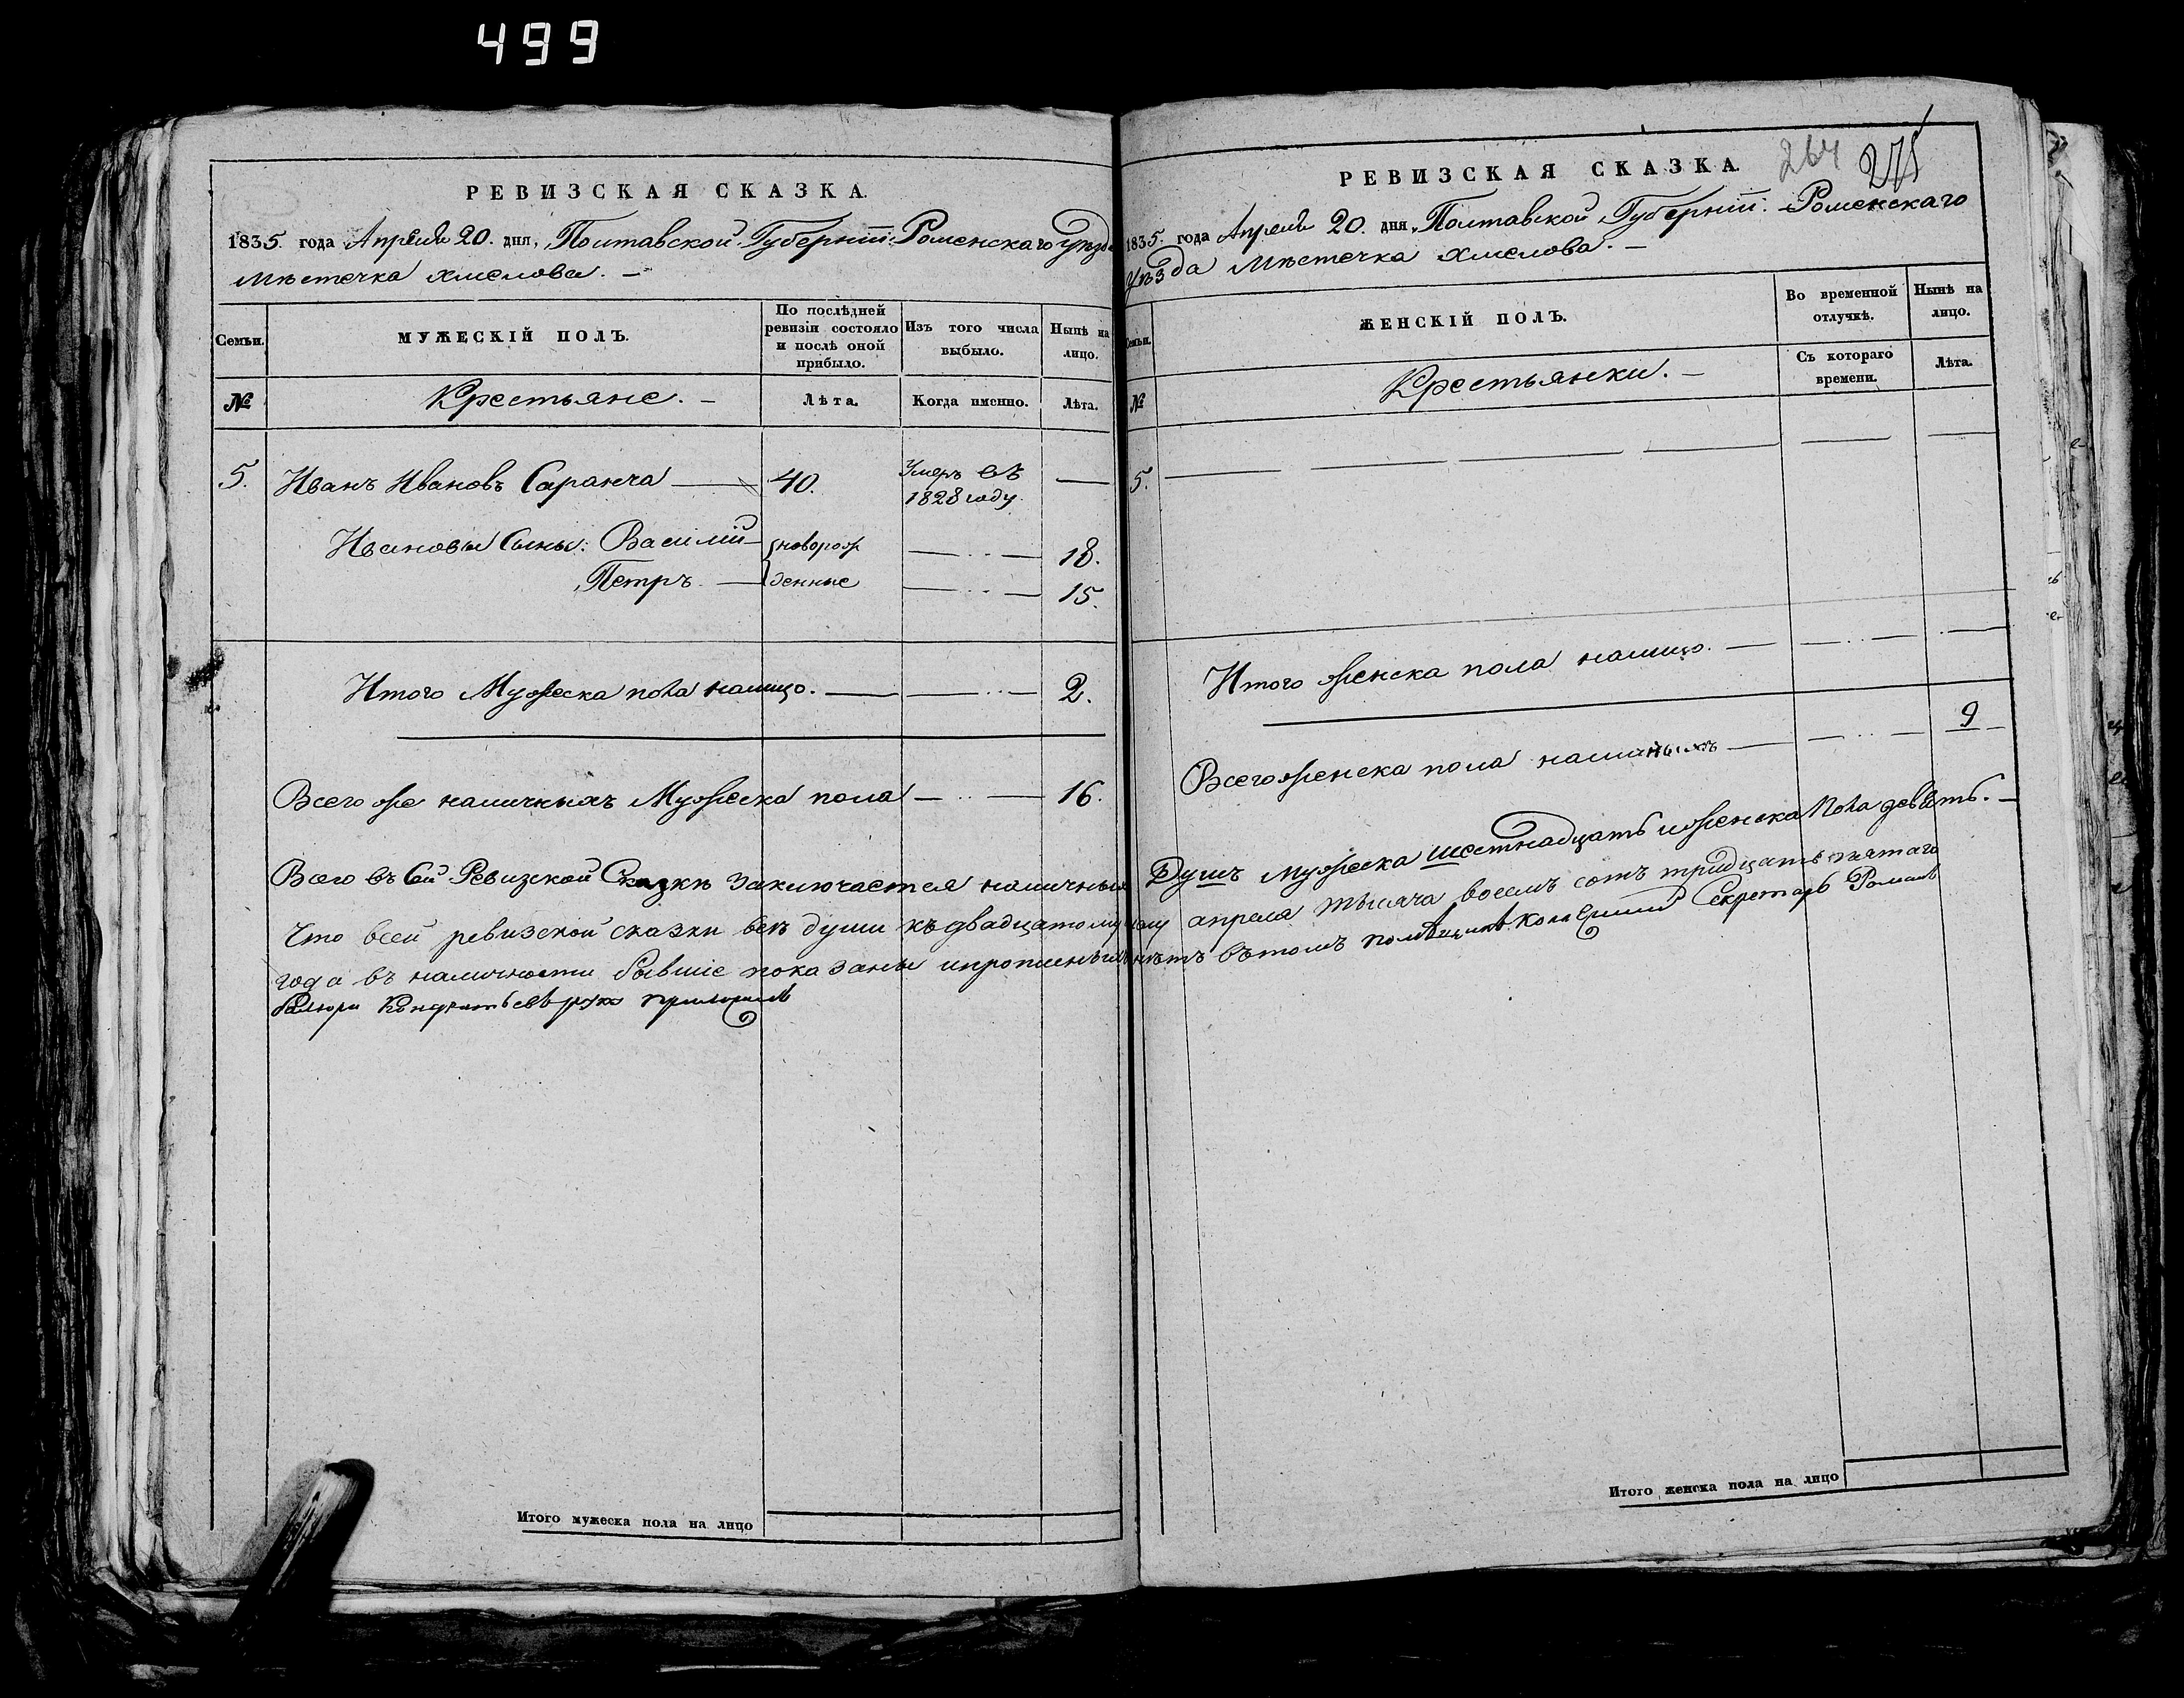 499
РЕВИЗСКАЯ СКАЗКА.
1835. года Апреля 20. дня, Полтавской Губерніи Роменскаго Уезда
Мѣстечка Хмелова. —
Семьи.
МУЖЕСКІЙ ПОЛЪ.
По послѣдней ревизіи состояло и послѣ оной прибыло.
Изъ того числа выбыло.
Нынѣ на лицо.
№
Крестьяне. —
Лѣта.
Когда именно.
Лѣта.
5. Иванъ Ивановъ Саранча — 40. Умеръ въ 1828 году —
Ивановы Сыны: Василий — новорож — 18.
Петръ — денные — 15.
Итого Мужеска пола налицо. — 2.
Всего же наличныхъ Мужеска пола — 16.
РЕВИЗСКАЯ СКАЗКА.
264 275
1835. года Апреля 20. дня, Полтавской Губерніи. Роменскаго
Уѣзда Мѣстечка Хмелова. —
Семьи.
ЖЕНСКІЙ ПОЛЪ.
Во временной отлучкѣ.
Нынѣ на лицо.
№
Крестьянки. —
Съ котораго времени.
Лѣта.
5. —
Итого женска пола налицо. —
Всего женска пола наличныхъ — 9
Всего въ Сей Ревизской Сказкѣ заключается наличныхъ Душъ мужеска шестнадцать и женска пола девять. —
Что всей ревизской сказки всѣ души къ двадцатому числу апреля тысяча восемъ сотъ тридцать пятаго
года въ наличности бывшіе показаны и прописныхъ нѣтъ вътомъ Секретарь Романъ
Кондратьевъ руку приложилъ
Итого мужеска пола на лицо
Итого женска пола на лицо